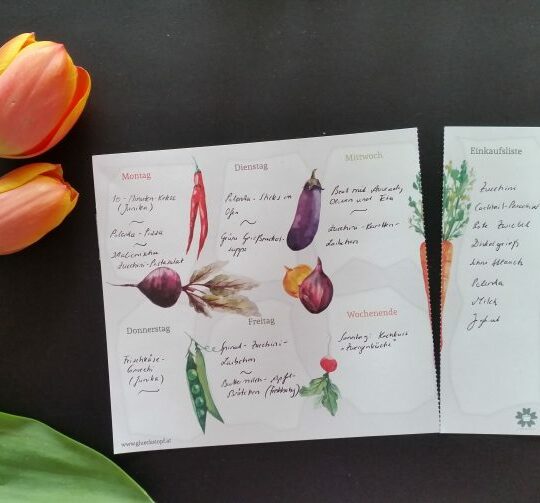 Montag
10-Minuten-Kekse
(Junika)
~
Polenta-Pizza
~
Italienischer
Zucchini-Pastasalat
Dienstag
Polenta-Sticks im
Ofen
~
Grüne Grießnockerl-
suppe
Mittwoch
Brot mit Avocado,
Oliven und Ei
~
Zucchini-Karotten-
Laibchen
Donnerstag
Frischkäse-
Gnocchi
(Junika)
~
Freitag
Spinat-Zucchini-
Laibchen
~
Buttermilch-Apfel-
Brötchen
Wochenende
Sonntag: Kochbuch
"Zwergenküche"
www.gluckstopf.at
Einkaufsliste
Zucchini
Cocktail-
Rote Zwiebel
Dinkelgrieß
Polenta
Milch
Joghurt